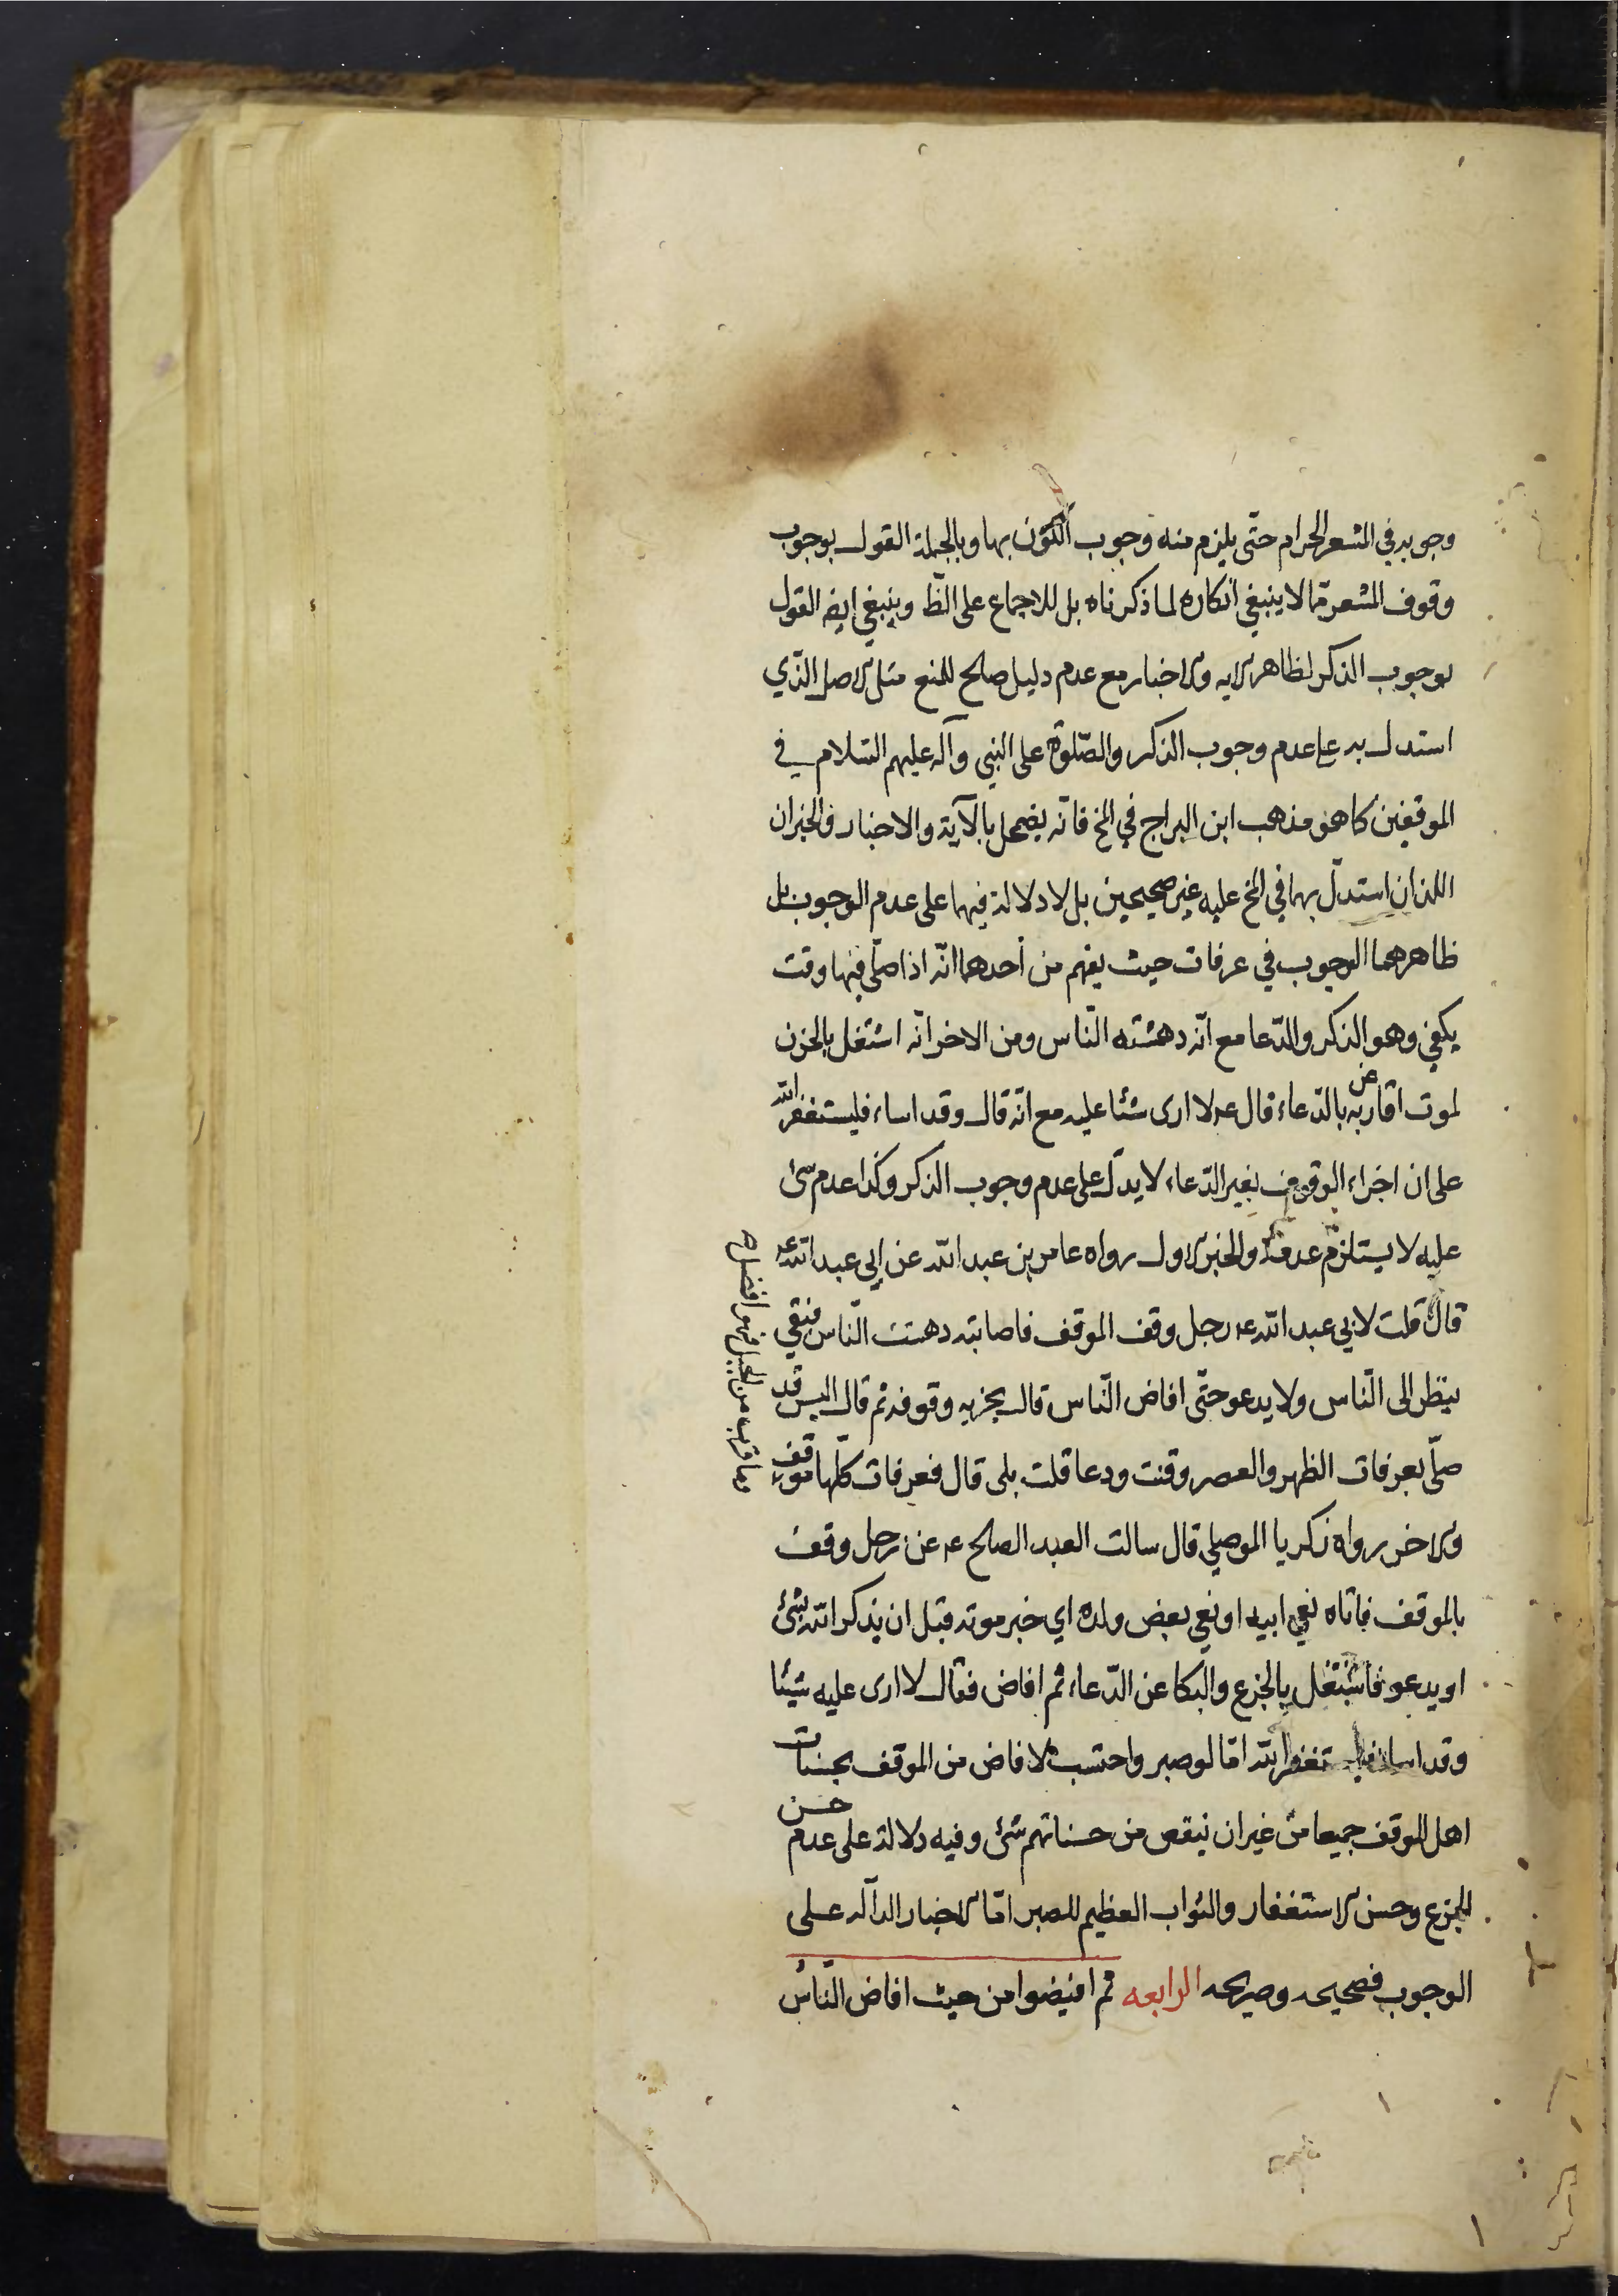 وجوبه في المشعر الحرام حتّى يلزم منه وجوب الكون بها وبالجملة القول بوجوب
وقوف المشعر ممّا لا ينبغي انكاره لما ذكرناه بل للاجماع على الظّ وينبغي ايضه القول
بوجوب الذكر لظاهر الايه والاخبار مع عدم دليل صالح للمنع مثل الاصل الذّي
استدل به على عدم وجوب الذكر والصّلوة على النبي وآله عليهم السّلام في
الموقفين كما هو مذهب ابن البراج في المخ فانّه يضمحل بالآية والاخبار والخبران
اللذان استدلّ بهما في المخ عليه غير صحيحين بل لا دلالة فيهما على عدم الوجوب بل
ظاهرهما الوجوب في عرفات حيث يفهم من أحدهما انّه اذا صلّى فيها وقنت
يكفي وهو الذكر والدّعا مع انّه دهشته النّاس ومن الاخر انّه اشتغل بالحزن
لموت اقاربه عن بالدّعاء قال عه لا ارى شئا عليه مع انّه قال وقد اساء فليستغفر الله
على ان اجزاء الوقوف بغير الدّعاء لا يدلّ على عدم وجوب الذكر وكذا عدم شئ
عليه لا يستلزم عدمه والخبر الاول رواه عامر بن عبد الله عن ابي عبد الله عه
قال قلت لابي عبد الله عه رجل وقف الموقف فاصابته دهشت النّاس فبقي
ينظر الى النّاس ولا يدعو حتّى افاض النّاس قال يجزيه وقوفه ثم قال اليس قد
صلّى بعرفات الظهر والعصر وقنت ودعا قلت بلى قال فعرفات كلّها موقف
وما قرب من الجبل فهو افضل
والاخر رواه زكريا الموصلي قال سالت العبد الصالح عه عن رجل وقف
بالموقف فاتاه نعي ابيه او نعي بعض ولده اي خبر موته قبل ان يذكر الله بشئ
او يدعو فاشتغل بالجزع والبكا عن الدّعاء ثم افاض فقال لا ارى عليه شيئا
وقد اساء فليستغفر الله امّا لو صبر واحتسب لافاض من الموقف بحسنات
اهل الموقف جميعا من غير ان ينقص من حسناتهم شئ وفيه دلالة على عدم حسن
الجزع وحسن الاستغفار والثواب العظيم للصبر امّا الاخبار الدآله على
الوجوب فصحيحه وصريحه الرابعه ثم افيضوا من حيث افاض النّاس